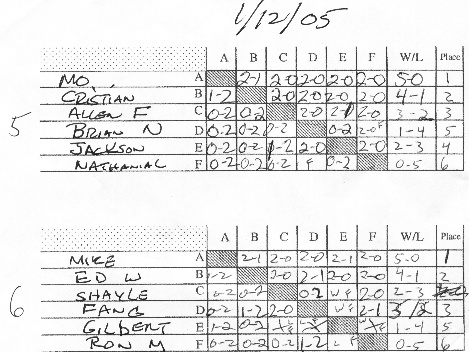 1/12/05
A B C D E F W/L Place
MO A 2-1 2-0 2-0 2-0 2-0 5-0 1
CRISTIAN B 1-2 2-0 2-0 2-0 2-0 4-1 2
ALLEN F C 0-2 0-2 2-0 2-0 3-2 3
5 BRIAN N D 0-2 0-2 0-2 0-2 2-0F 1-4 5
JACKSON E 0-2 0-2 2-0 2-0 2-3 4
NATHANIAL F 0-2 0-2 0-2 F 0-2 0-5 6
A B C D E F W/L Place
MIKE A 2-1 2-0 2-0 2-1 2-0 5-0 1
ED W B 1-2 2-0 2-1 2-0 2-0 4-1 2
SHAYLE C 0-2 0-2 0-2 WF 2-0 2-3
6 FANG D 0-2 1-2 2-0 WF 2-1 3/2 3
GILBERT E 1-2 0-2 1-4 5
RON M F 0-2 0-2 0-2 1-2 0-5 6